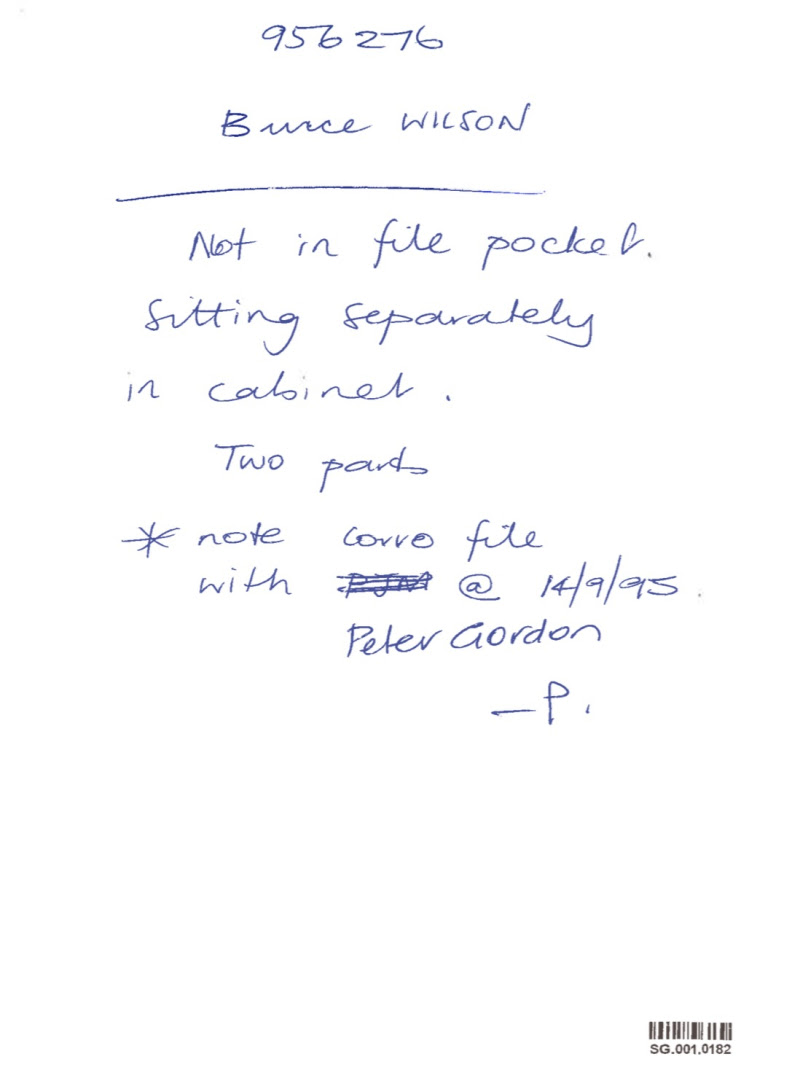 956276
Bruce WILSON
Not in file pocket.
Sitting separately
in cabinet.
Two parts
* note corro file
with PJM @ 14/9/95.
Peter Gordon
— P.
SG.001.0182